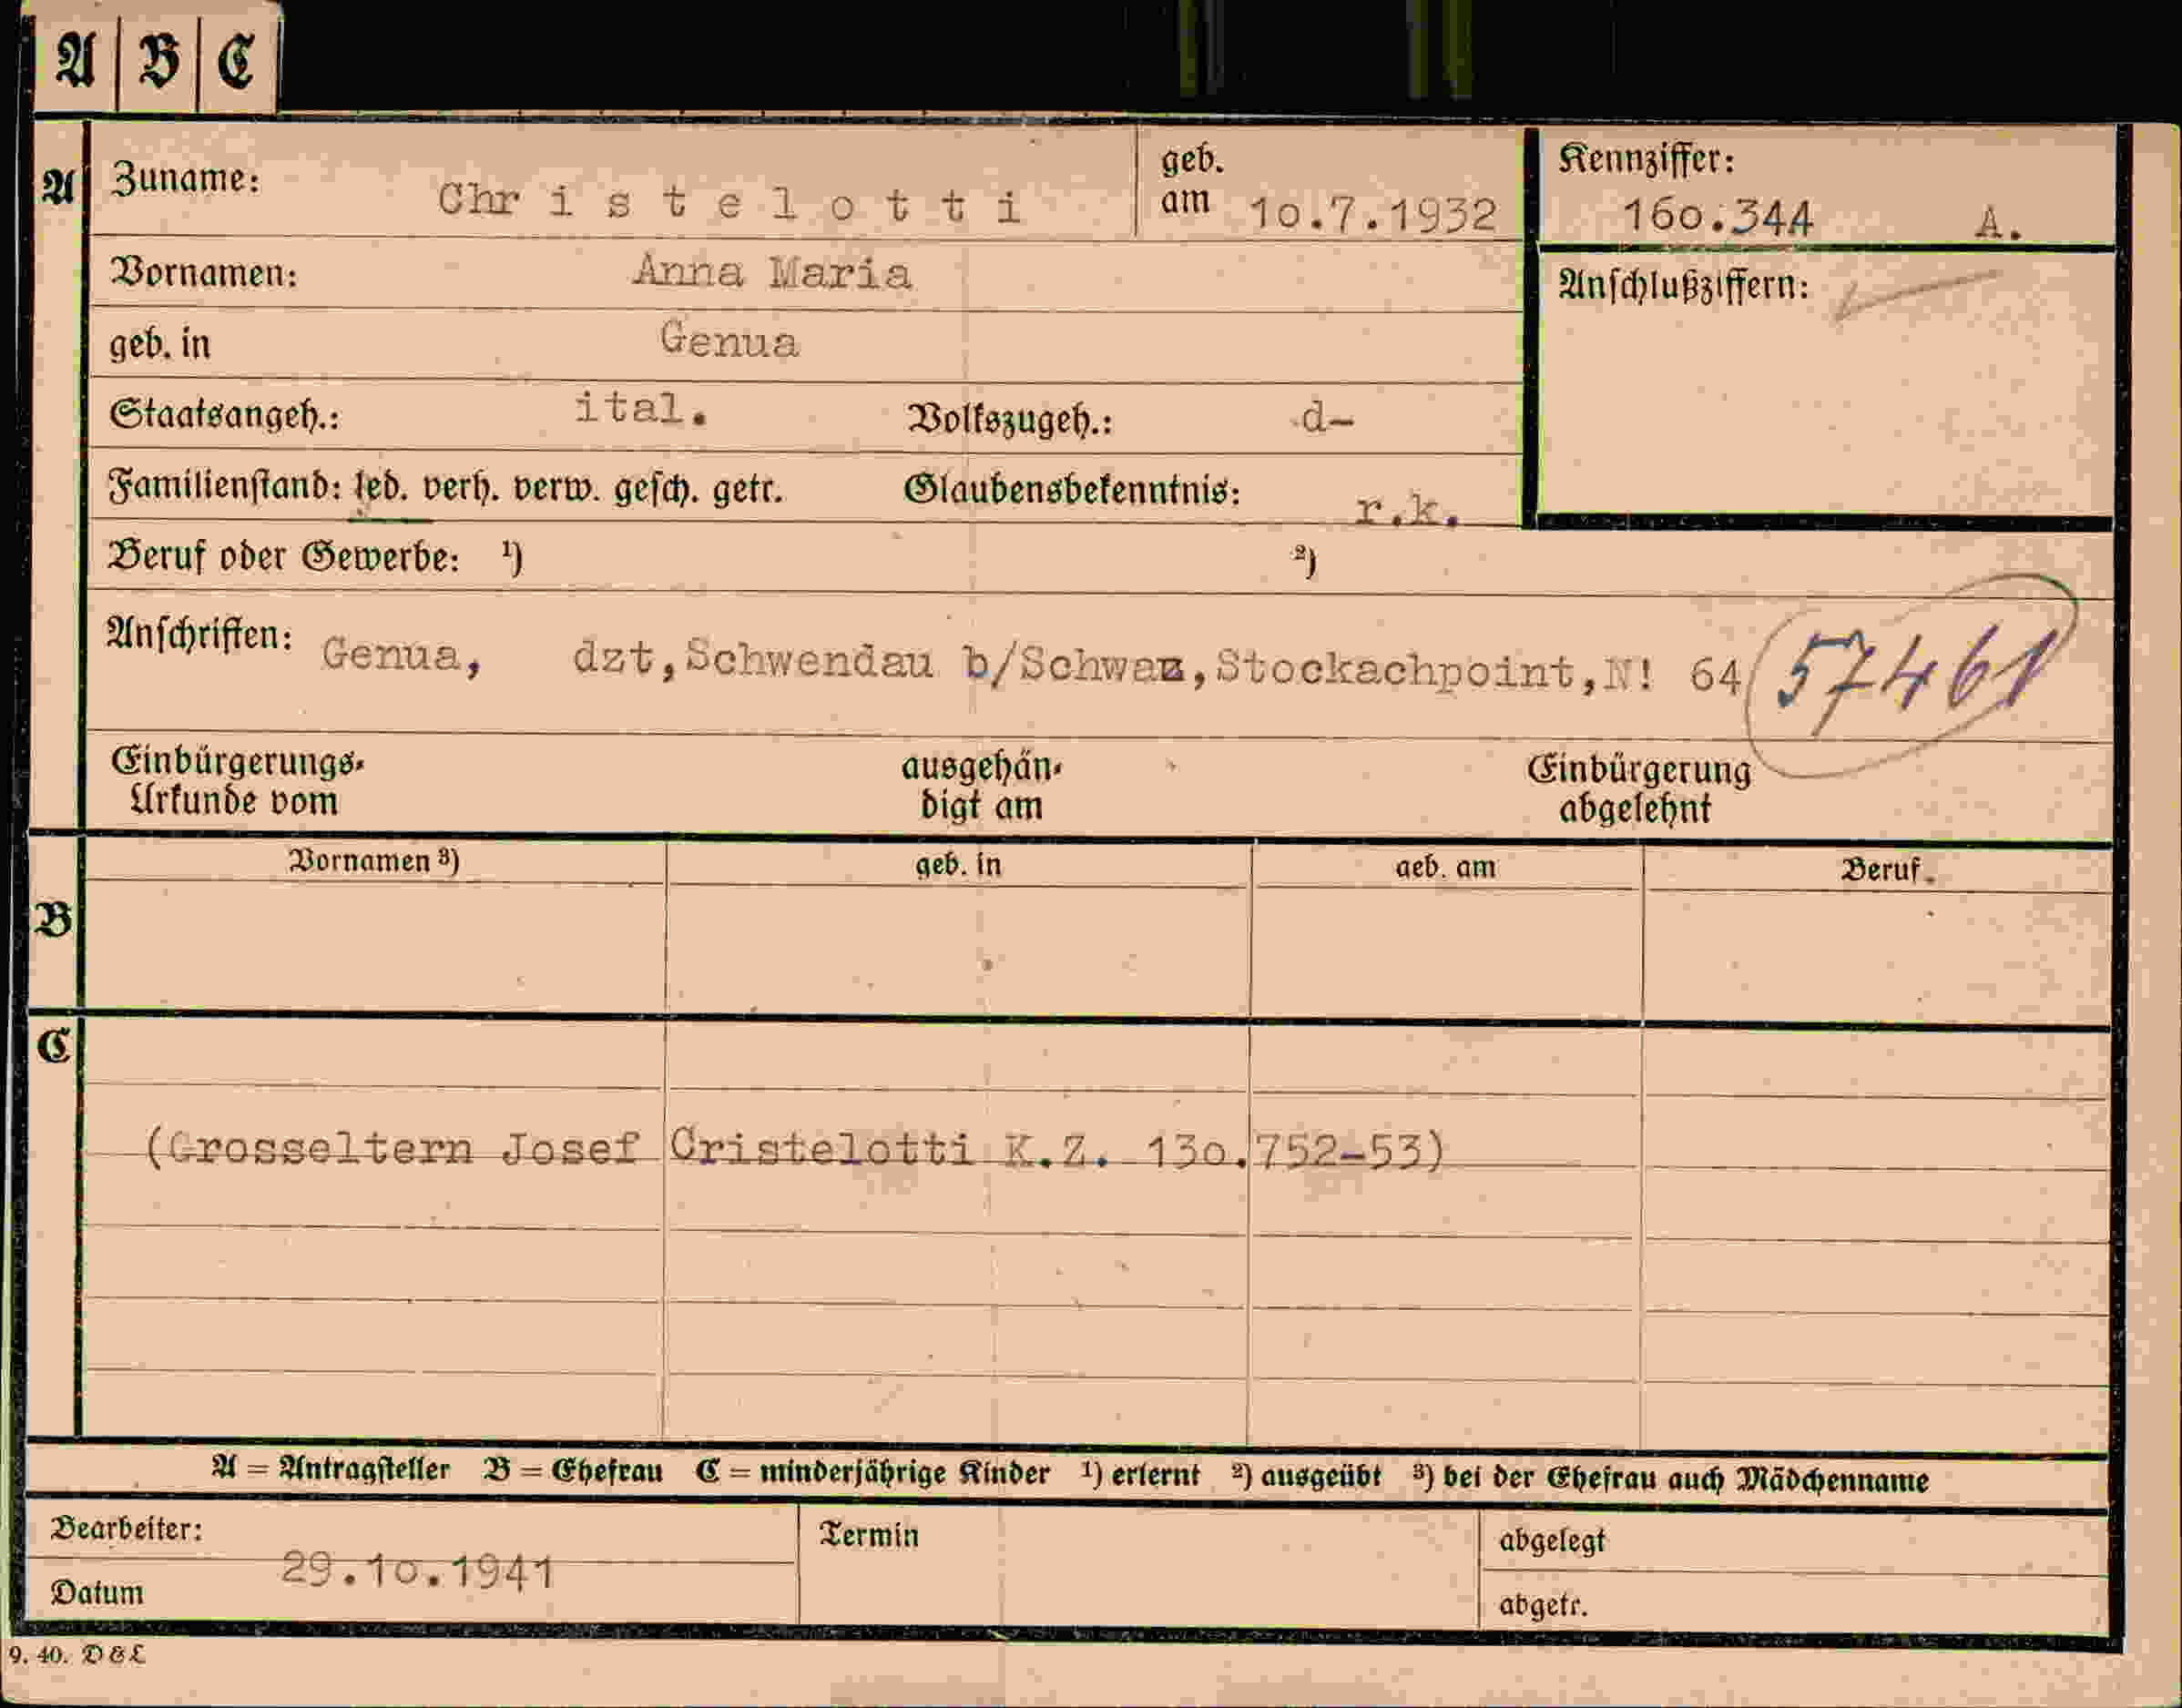 A B C
A Zuname: Christelotti geb. am 10.7.1932 Kennziffer: 160.344 A.
Vornamen: Anna Maria Anschlußziffern:
geb. in Genua
Staatsangeh.: ital. Volkszugeh.: d-
Familienstand: led. verh. verw. gesch. getr. Glaubensbekenntnis: r.k.
Beruf oder Gewerbe: ¹) ²)
Anschriften: Genua, dzt,Schwendau b/Schwaz,Stockachpoint,N! 64 57461
Einbürgerungs- ausgehän- Einbürgerung
Urkunde vom digt am abgelehnt
Vornamen ³) geb. in geb. am Beruf
B
C
(Grosseltern Josef Cristelotti K.Z. 130.752-53)
A = Antragsteller B = Ehefrau C = minderjährige Kinder ¹) erlernt ²) ausgeübt ³) bei der Ehefrau auch Mädchenname
Bearbeiter: Termin abgelegt
29.10.1941
Datum abgetr.
9. 40. D & L